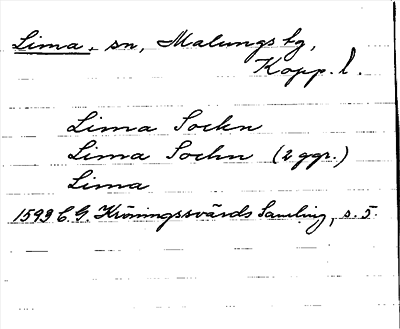 Lima, sn, Malungs tg,
Kopp. l.
Lima Sockn
Lima Sochn (2 ggr.)
Lima
1599 C. G. Kröningssvärds Samling, s. 5.